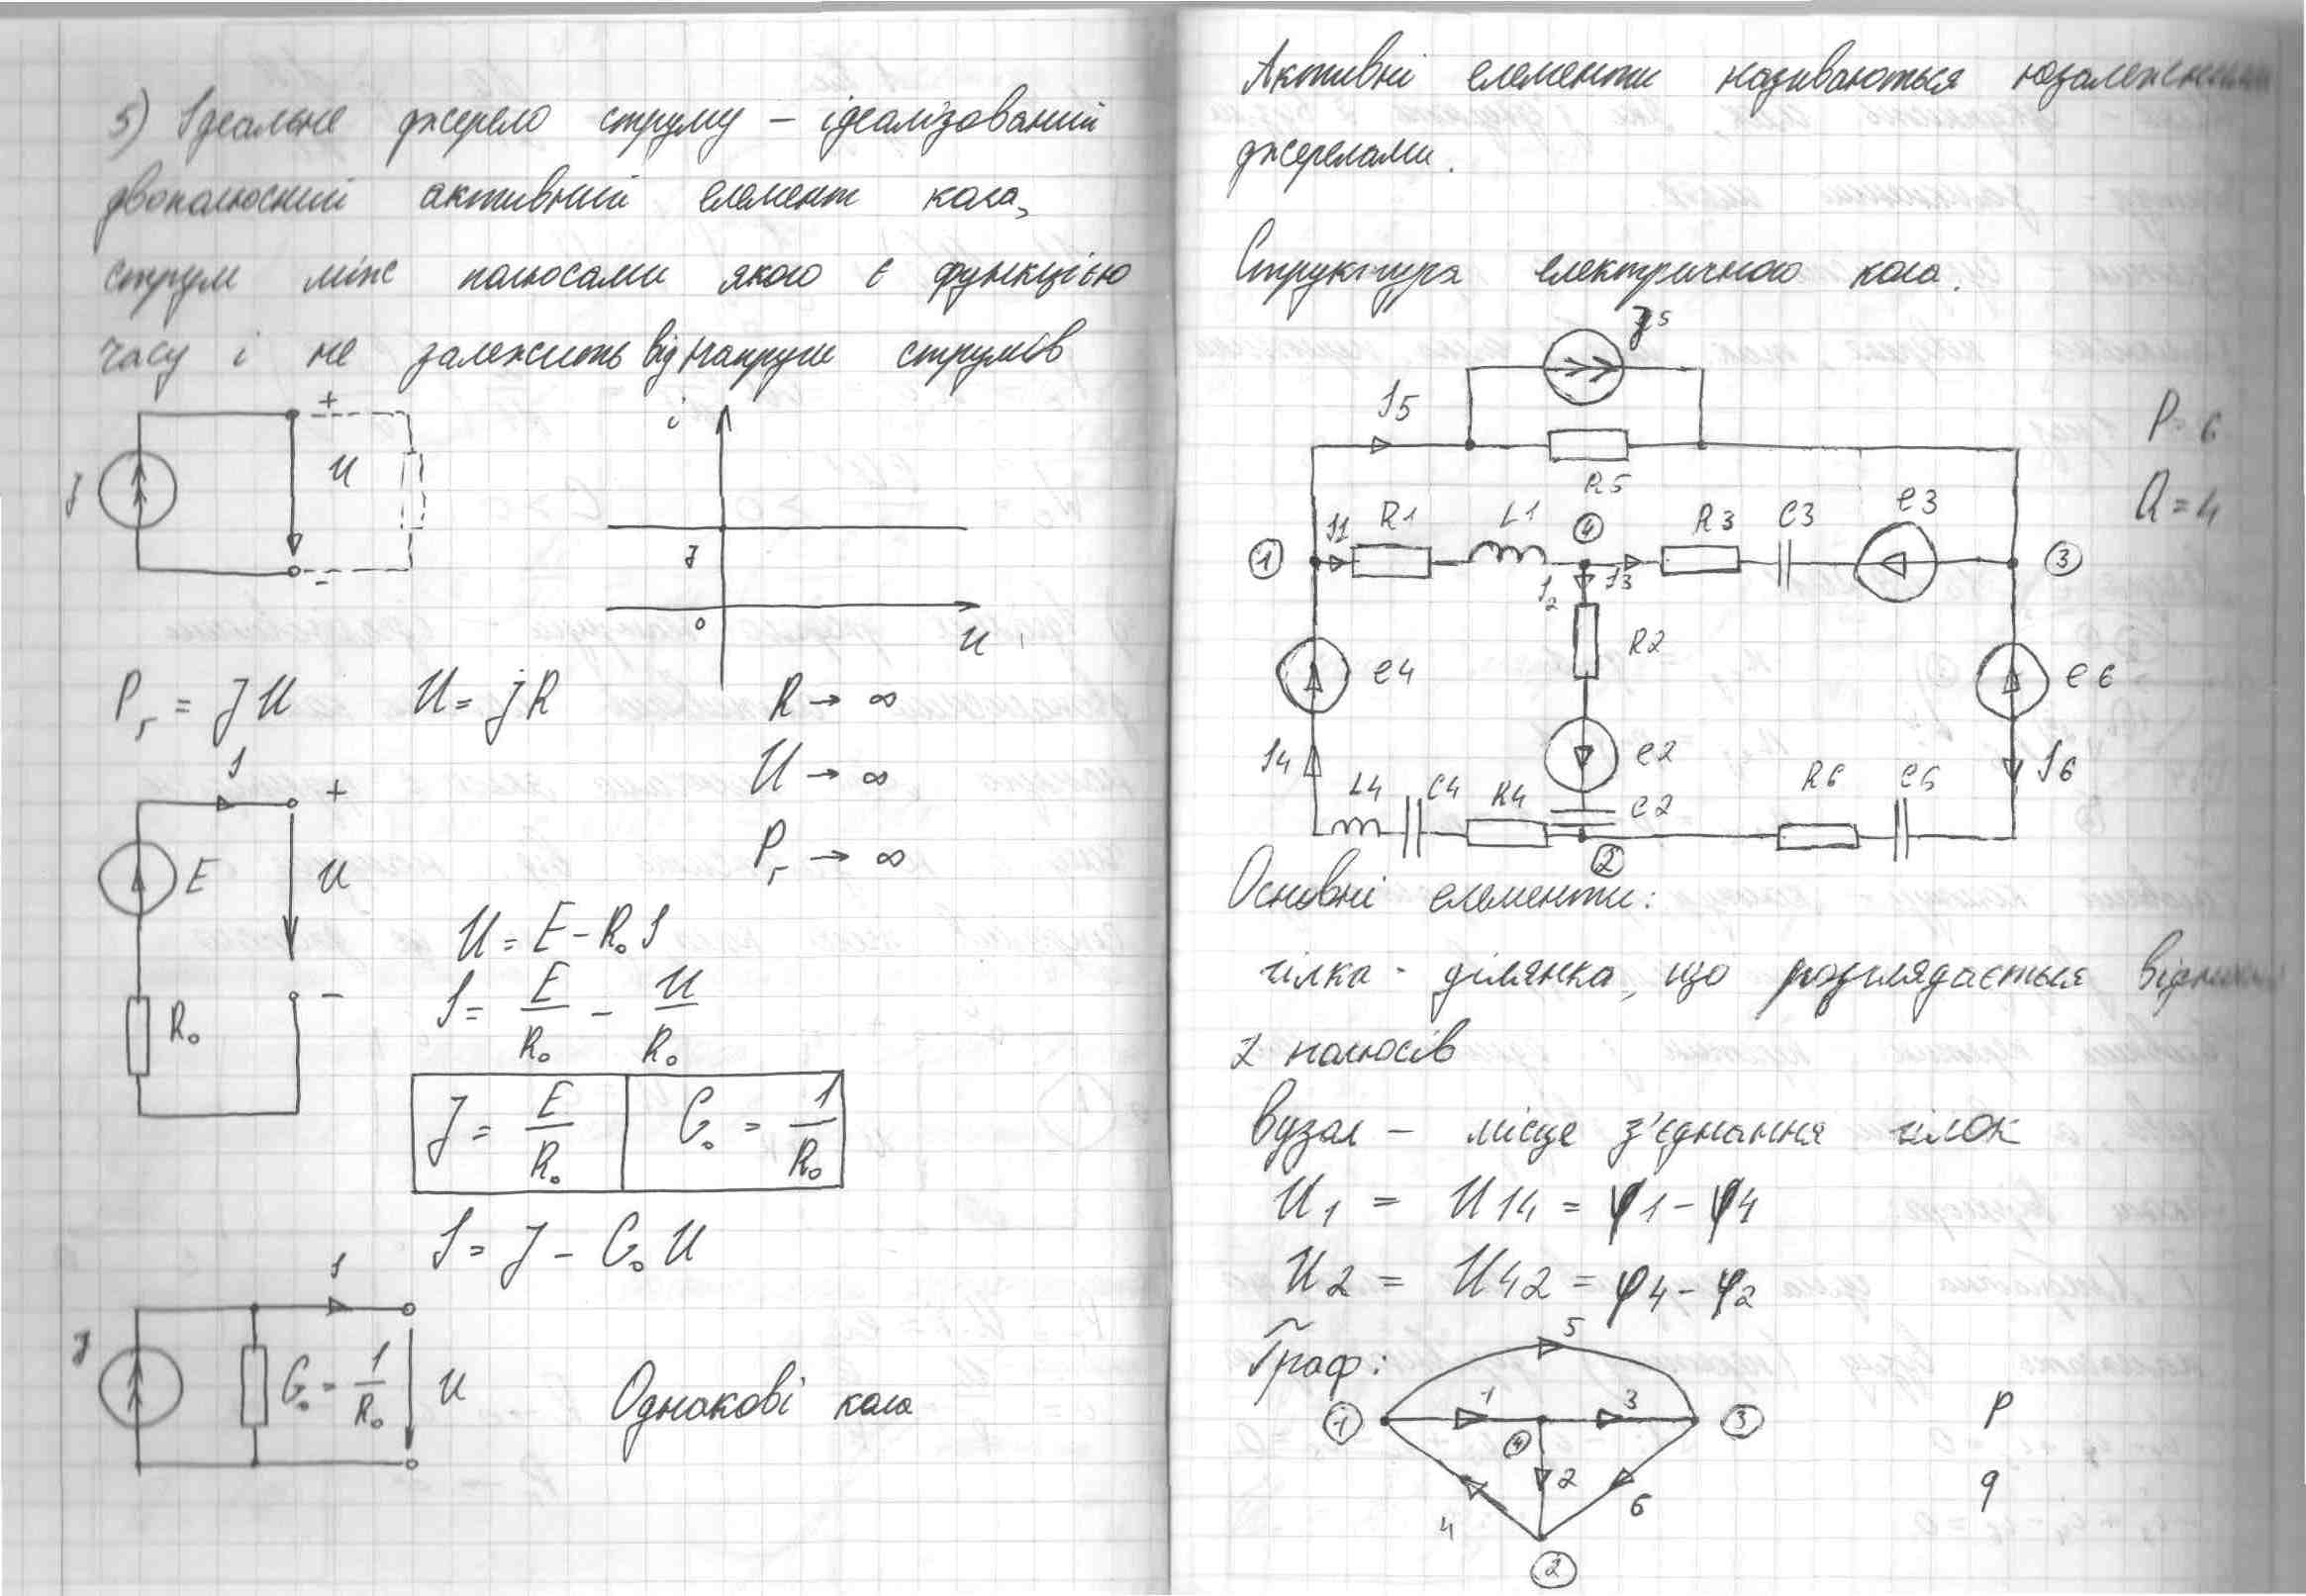 5) Ідеальне джерело струму – ідеалізований
двополюсний активний елемент кола,
струм між полюсами якого є функцією
часу і не залежить від напруги струмів
J
+
U
-
i
J
0
U
Pг = JU U = jR R → ∞
U → ∞
Pг → ∞
I
+
E
U
-
R₀
U = E – R₀I
I = E/R₀ – U/R₀
J = E/R₀ | G₀ = 1/R₀
I = J – G₀U
I
J
G₀ = 1/R₀
U
Однакові кола
Активні елементи називаються незалежними
джерелами.
Структура електричного кола.
J5
I5
R5
P = 6
Q = 4
① I1 R1 L1 ④ R3 C3 e3 ③
I2 I3
R2
e4
e6
e2
I4
I6
L4 C4 R4 C2 R6 C6
②
Основні елементи:
гілка - ділянка, що розглядається
2 полюсів
Вузол – місце з'єднання гілок
U1 = U14 = φ1 – φ4
U2 = U42 = φ4 – φ2
Граф:
5
① 1 3 ③
④
2
4 6
②
P
q